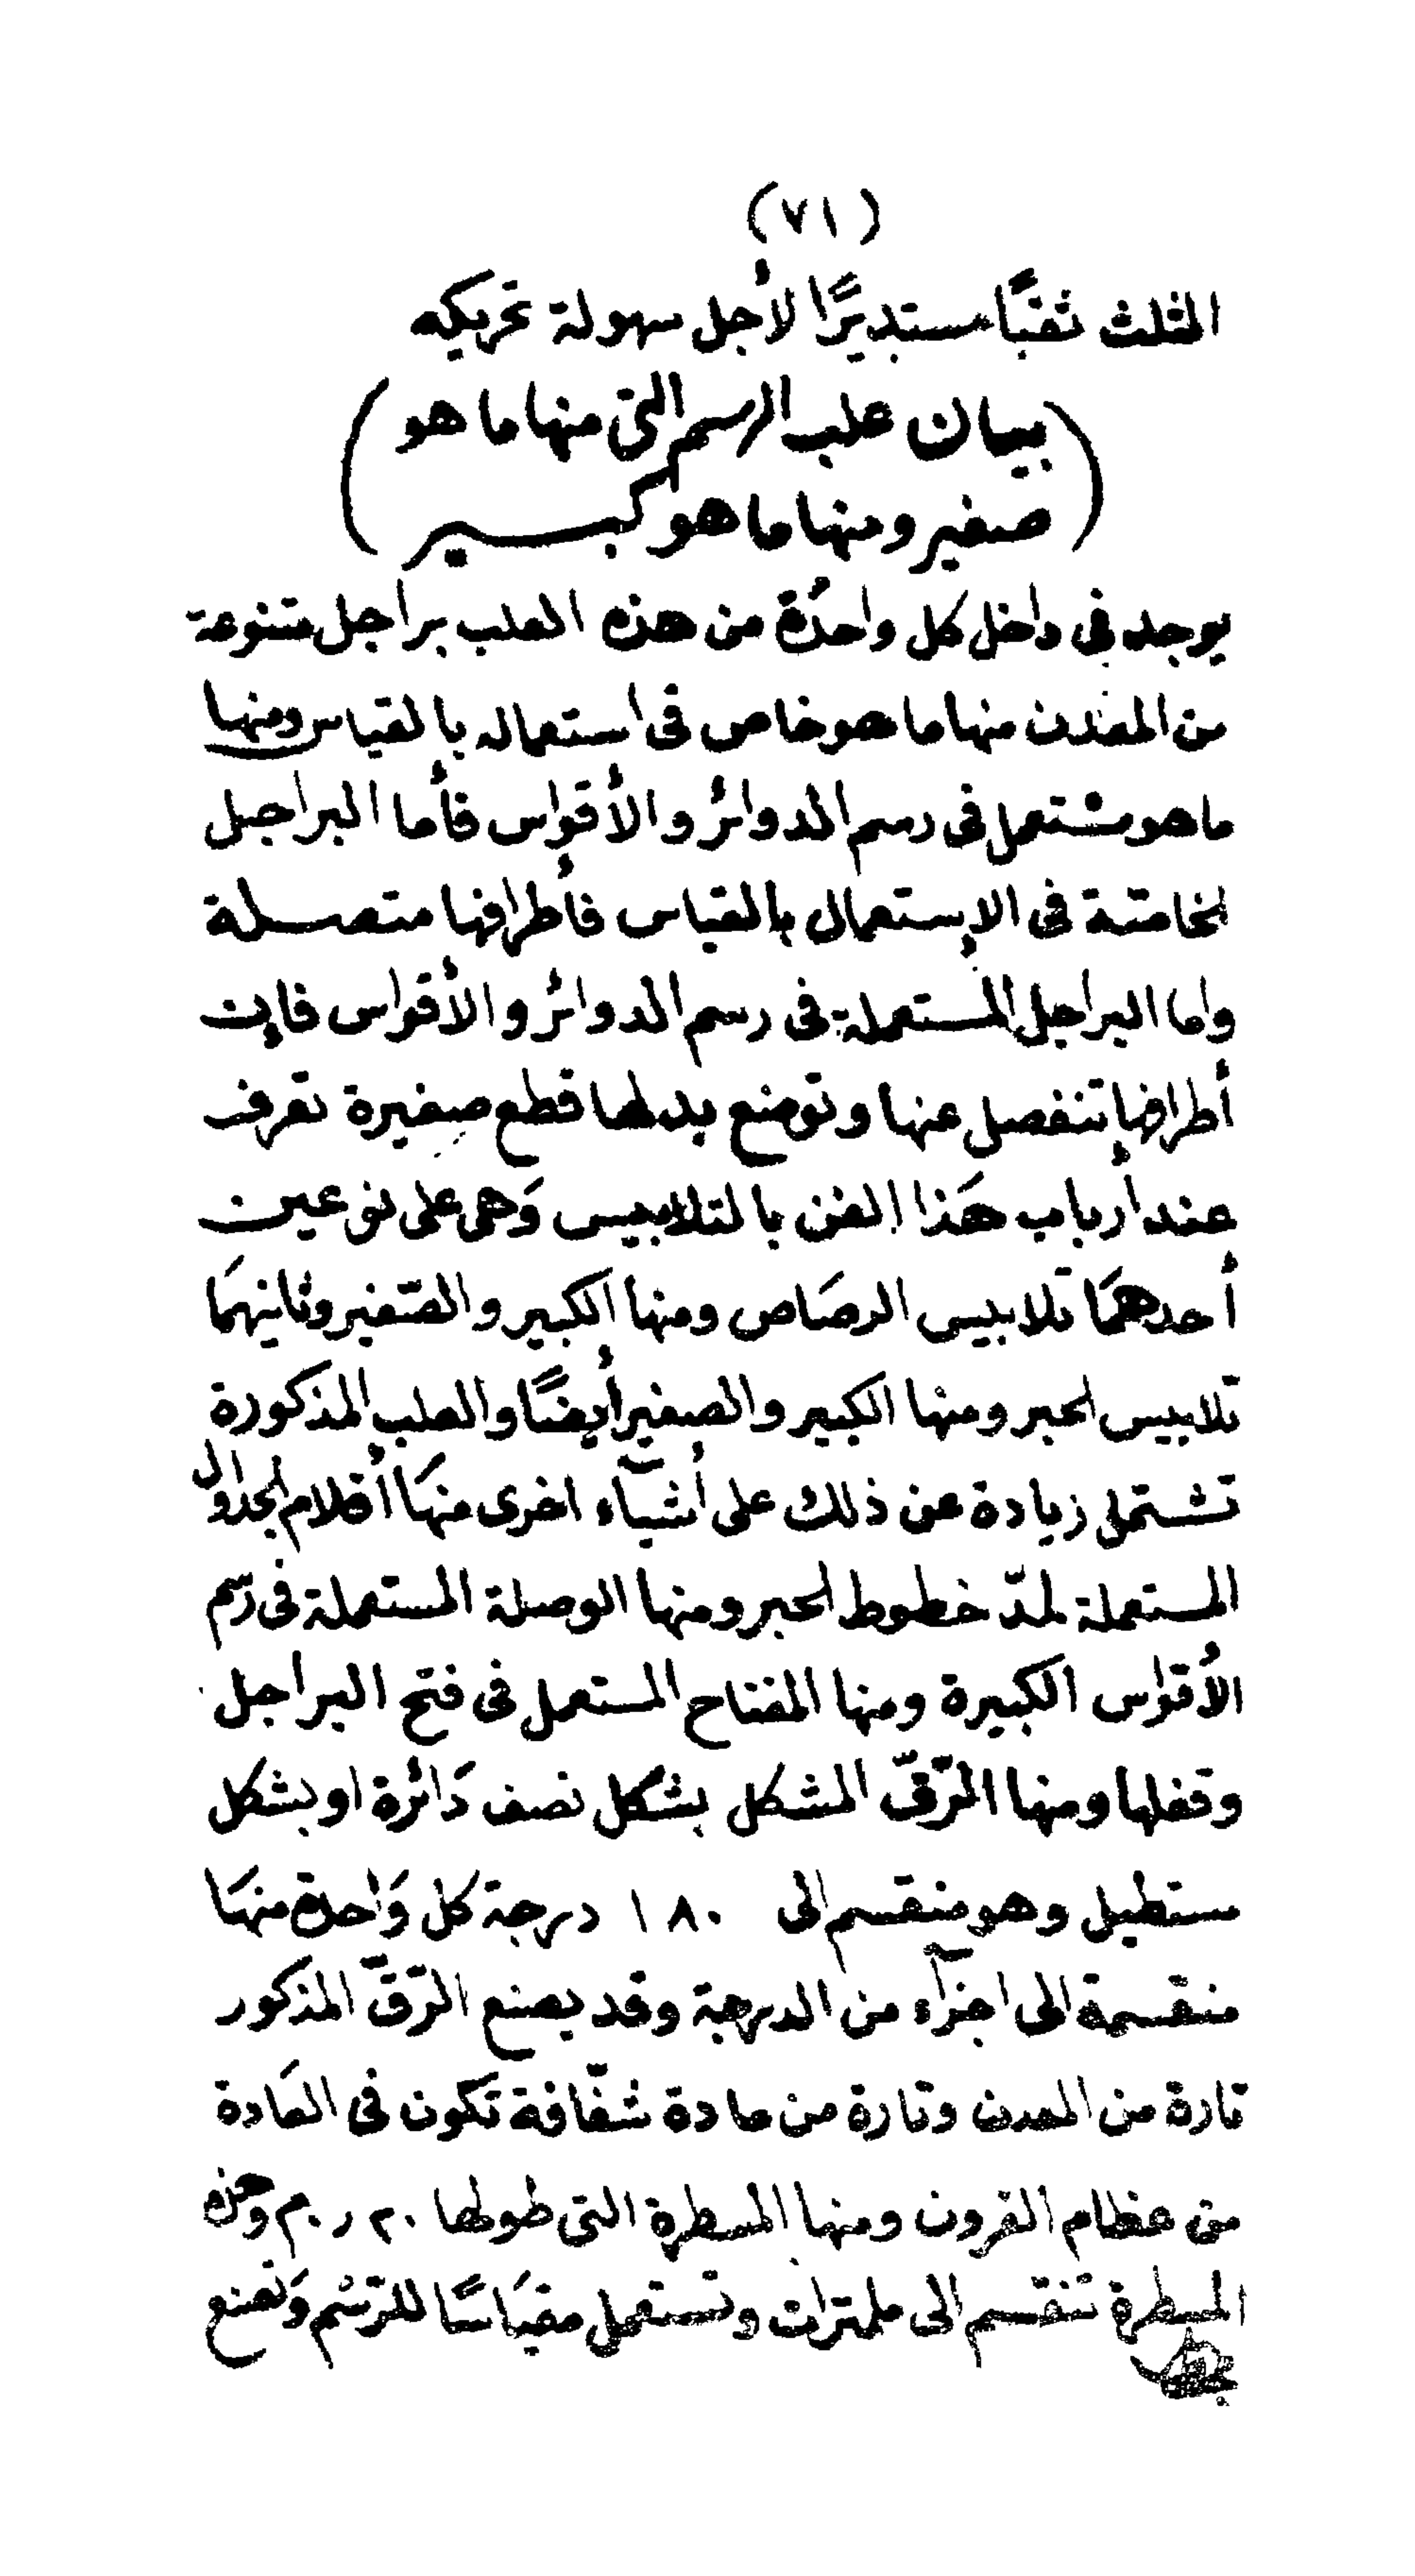 (٧١)
المثلث ثقبًا مستديرًا لأجل سهولة تحريكه
(بيان علب الرسم التى منها ما هو
صغير ومنها ما هو كبير)
يوجد فى داخل كل واحدة من هذه العلب براجل متنوعة
من المعدن منها ما هو خاص فى استعماله بالقياس ومنها
ما هو مستعمل فى رسم الدوائر والأقواس فأما البراجل
الخاصة فى الإستعمال بالقياس فأطرافها متصلة
واما البراجل المستعملة فى رسم الدوائر والأقواس فإن
أطرافها تنفصل عنها وتوضع بدلها قطع صغيرة تعرف
عند أرباب هَذا الفن بالتلابيس وَهى على نوعين
أحدهمَا تلابيس الرصَاص ومنها الكبير والصّغير وثانيهمَا
تلابيس الحبر ومنها الكبير والصغير أيضًا والعلب المذكورة
تشتمل زيادة عن ذلك على أشيآء اخرى منهَا أقلام الجداول
المستعملة لمدّ خطوط الحبر ومنها الوصلة المستعملة فى رسم
الأقواس الكبيرة ومنها المفتاح المستعمل فى فتح البراجل
وقفلها ومنها الرّقّ المشكل بشكل نصف دَائرة او بشكل
مستطيل وهو منقسم الى ١٨٠ درجة كل وَاحدة منهَا
منقسمة الى اجزآء من الدرجة وقد يصنع الرّقّ المذكور
تارة من المعدن وتارة من مادة شفّافة تَكون فى العَادة
من عظام القرون ومنها المسطرة التى طولها ٢٠ر٠م وهذه
المسطرة تنقسم الى ملمترات وتستعمل مقيَاسًا للرّسْم وَتصنع